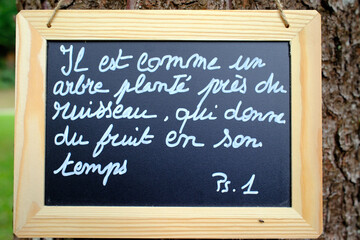 Il est comme un
arbre planté près du
ruisseau, qui donne
du fruit en son
temps
Ps. 1